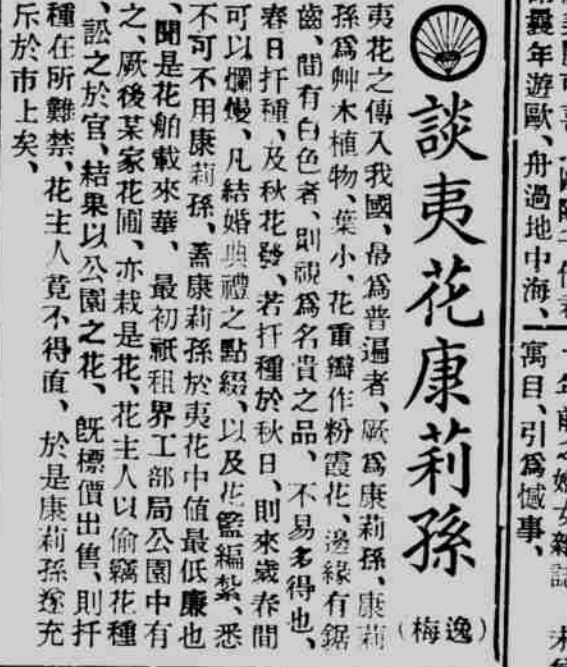 談夷花康莉孫
（逸梅）
夷花之傳入我國、最爲普遍者、厥爲康莉孫、康莉
孫爲艸木植物、葉小、花重瓣作粉霞花、邊緣有鋸
齒、間有白色者、則視爲名貴之品、不易多得也、
春日扦種、及秋花發、若扦種於秋日、則來歲春間
可以爛熳、凡結婚典禮之點綴、以及花籃編紮、悉
不可不用康莉孫、蓋康莉孫於夷花中値最低廉也
、聞是花舶載來華、最初祇租界工部局公園中有
之、厥後某家花圃、亦栽是花、花主人以偷竊花種
、訟之於官、結果以公園之花、旣標價出售、則扦
種在所難禁、花主人竟不得直、於是康莉孫遂充
斥於市上矣、
年遊歐、舟過地中海、
寓目、引爲憾事、